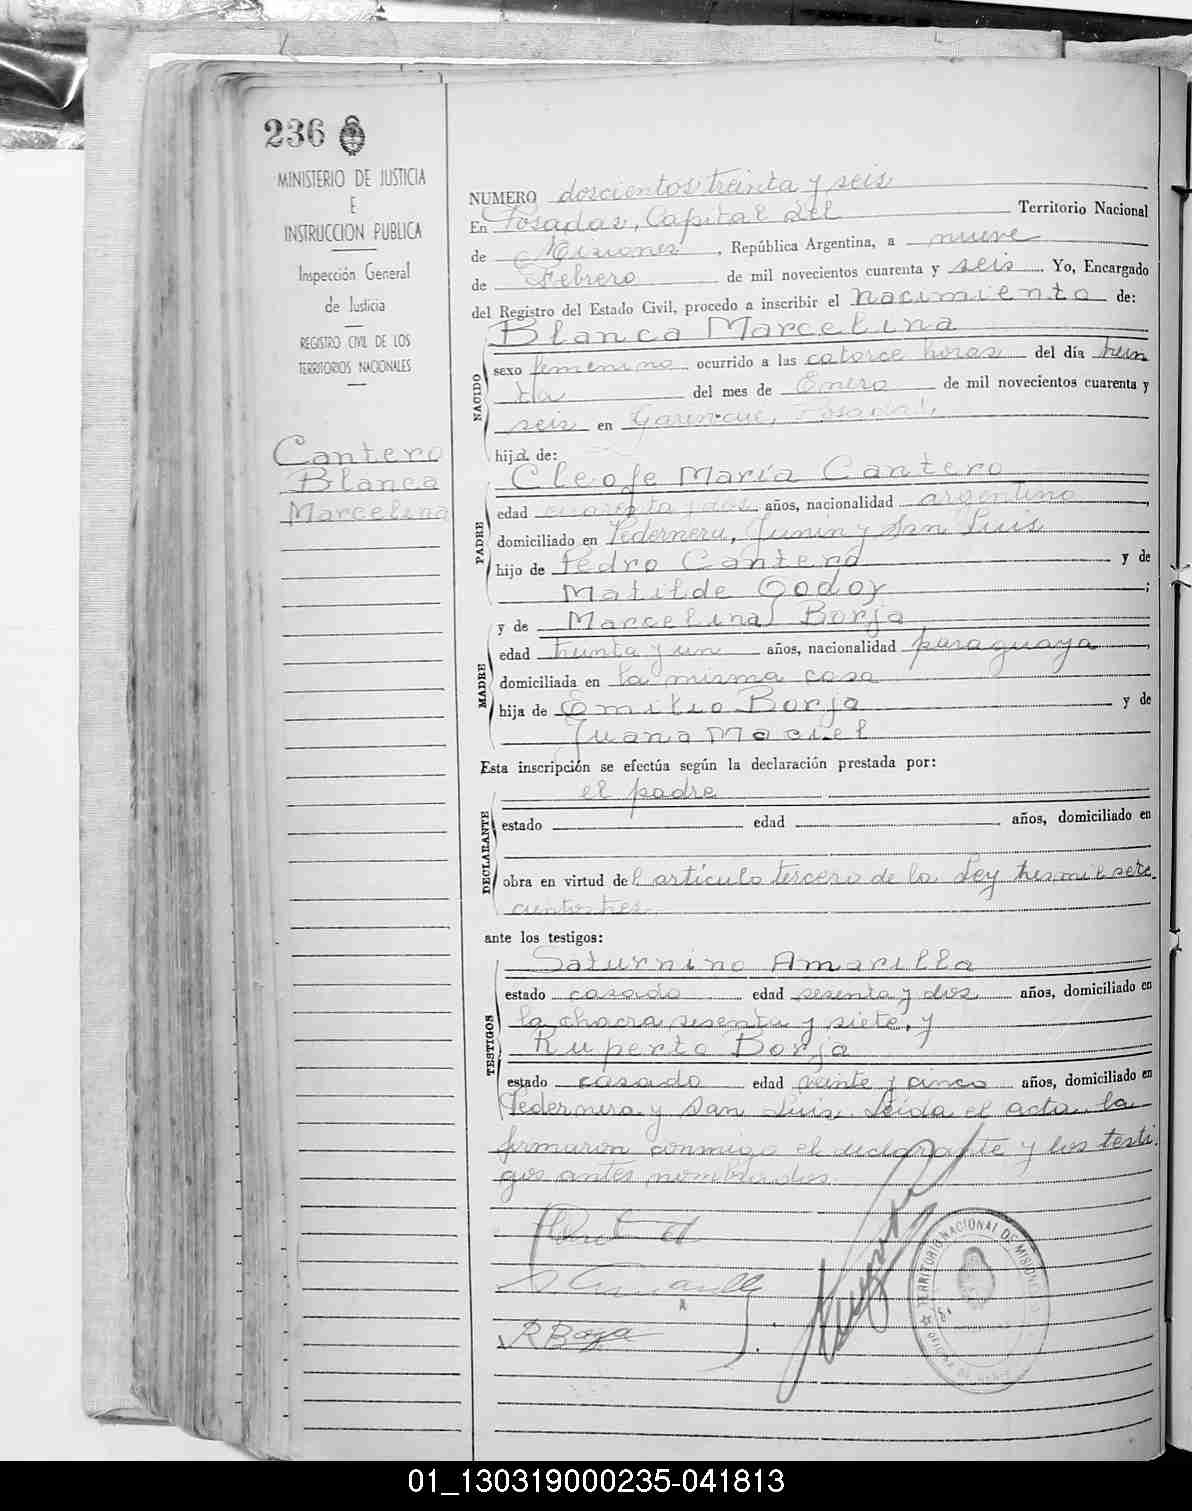 236
MINISTERIO DE JUSTICIA
E
INSTRUCCION PUBLICA
Inspección General
de Justicia
REGISTRO CIVIL DE LOS
TERRITORIOS NACIONALES
Cantero
Blanca
Marcelina
NUMERO doscientos treinta y seis
En Posadas, Capital del Territorio Nacional
de Misiones, República Argentina, a nueve
de Febrero de mil novecientos cuarenta y seis. Yo, Encargado
del Registro del Estado Civil, procedo a inscribir el nacimiento de:
NACIDO
Blanca Marcelina
sexo femenino ocurrido a las catorce horas del día trein
ta del mes de Enero de mil novecientos cuarenta y
seis en Posadas
hija de:
PADRE
Cleofe María Cantero
edad cuarenta y dos años, nacionalidad argentino,
domiciliado en Pedernera, Junín y San Luis
hijo de Pedro Cantero y de
Matilde Godoy;
MADRE
y de Marcelina Borja
edad treinta y un años, nacionalidad paraguaya,
domiciliada en la misma casa
hija de Emilio Borja y de
Juana Maciel
Esta inscripción se efectúa según la declaración prestada por:
DECLARANTE
el padre
estado edad años, domiciliado en
obra en virtud del artículo tercero de la Ley tres mil sete
cientos tres
ante los testigos:
TESTIGOS
Saturnino Amarilla
estado casado edad sesenta y dos años, domiciliado en
la chacra sesenta y siete, y
Ruperto Borja
estado casado edad veinte y cinco años, domiciliado en
Pedernera y San Luis. Leída el acta, la
firmaron conmigo el declarante y los testi
gos antes nombrados.
R Borja
TERRITORIO NACIONAL DE MISIONES
01_130319000235-041813